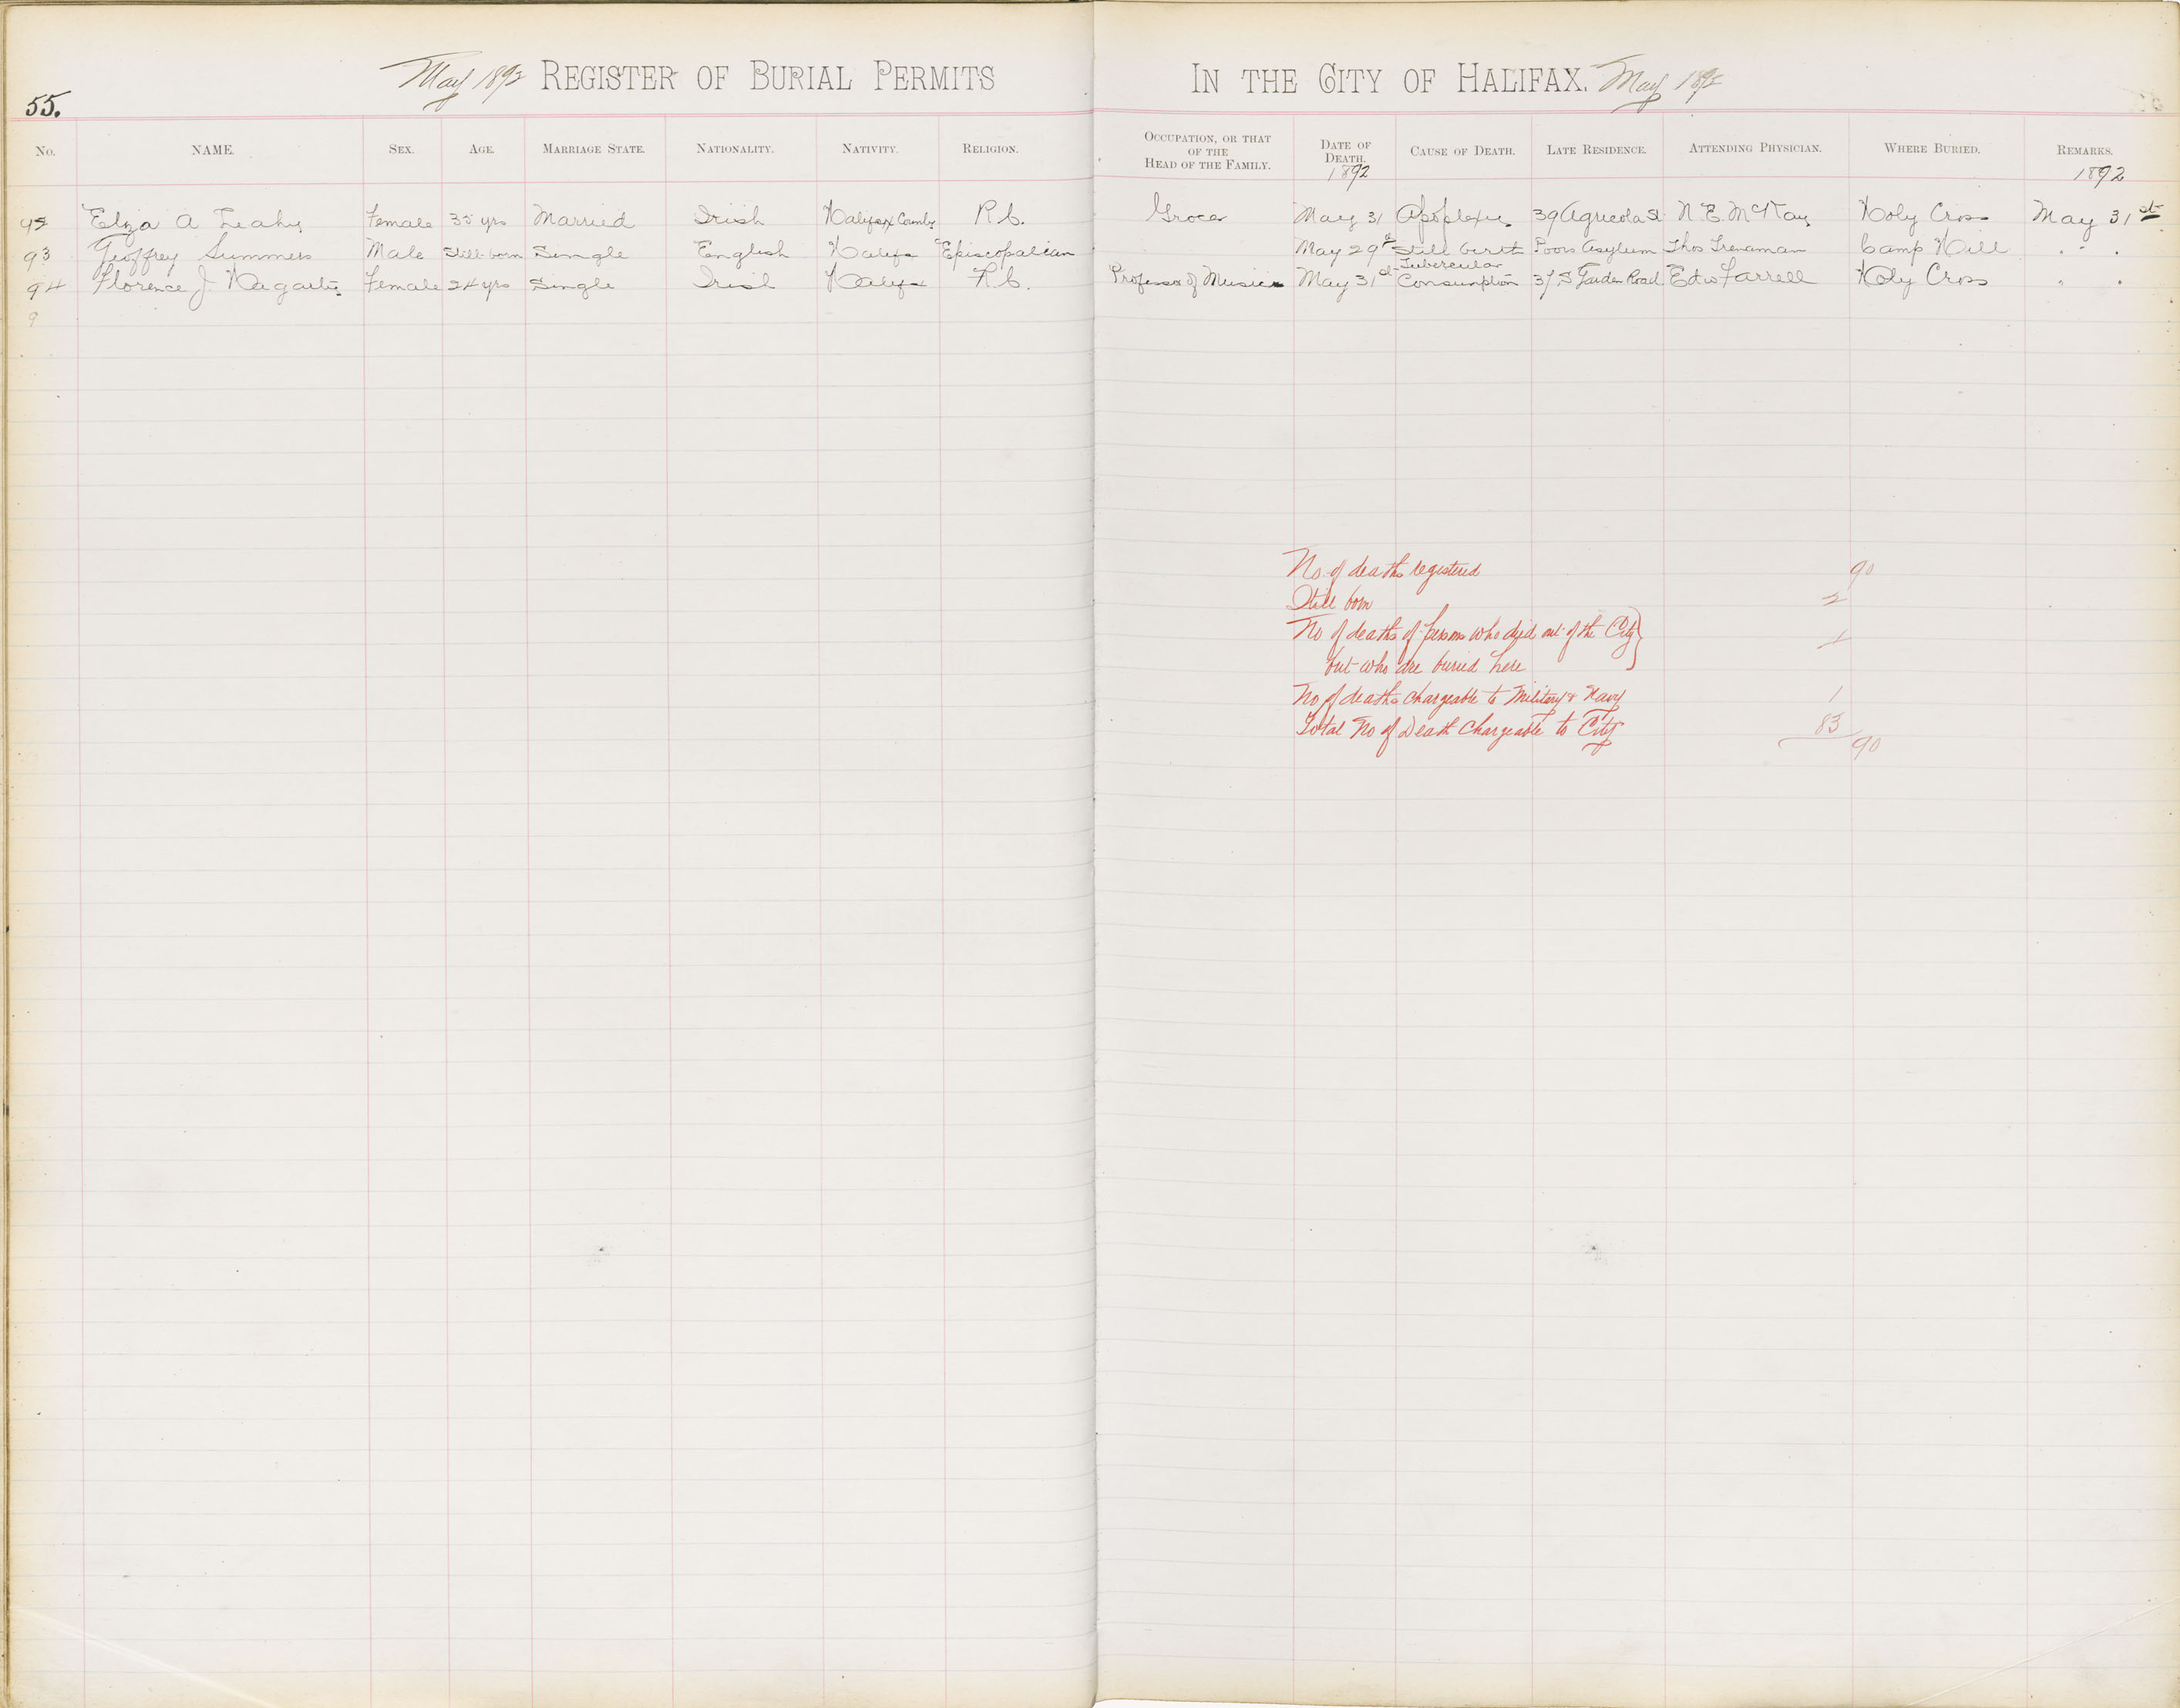 May 1892 REGISTER OF BURIAL PERMITS IN THE CITY OF HALIFAX. May 1892
55.
No. NAME. SEX. AGE. MARRIAGE STATE. NATIONALITY. NATIVITY. RELIGION. OCCUPATION, OR THAT OF THE HEAD OF THE FAMILY. DATE OF DEATH. CAUSE OF DEATH. LATE RESIDENCE. ATTENDING PHYSICIAN. WHERE BURIED. REMARKS.
1892 1892
92 Eliza A Leahy Female 35 yrs Married Irish Halifax County R.C. Grocer May 31 Apoplexy 39 Agricola St N E McKay Holy Cross May 31st
93 Geoffrey Summers Male Still-born Single English Halifx Episcopalian May 29th Still birth Poors Asylum Thos Trenaman Camp Hill " "
94 Florence J Hagarty Female 24 yrs Single Irish Halifx R.C. Professor of Music May 31st Tubercular Consumption 37 S Garden Road Edw Farrell Holy Cross " "
9
No. of deaths registered 90
Still born
No of deaths of persons who died out of the City
but who are buried here
No of deaths chargeable to Military & Navy 1
Total No of Death Chargeable to City 83
90